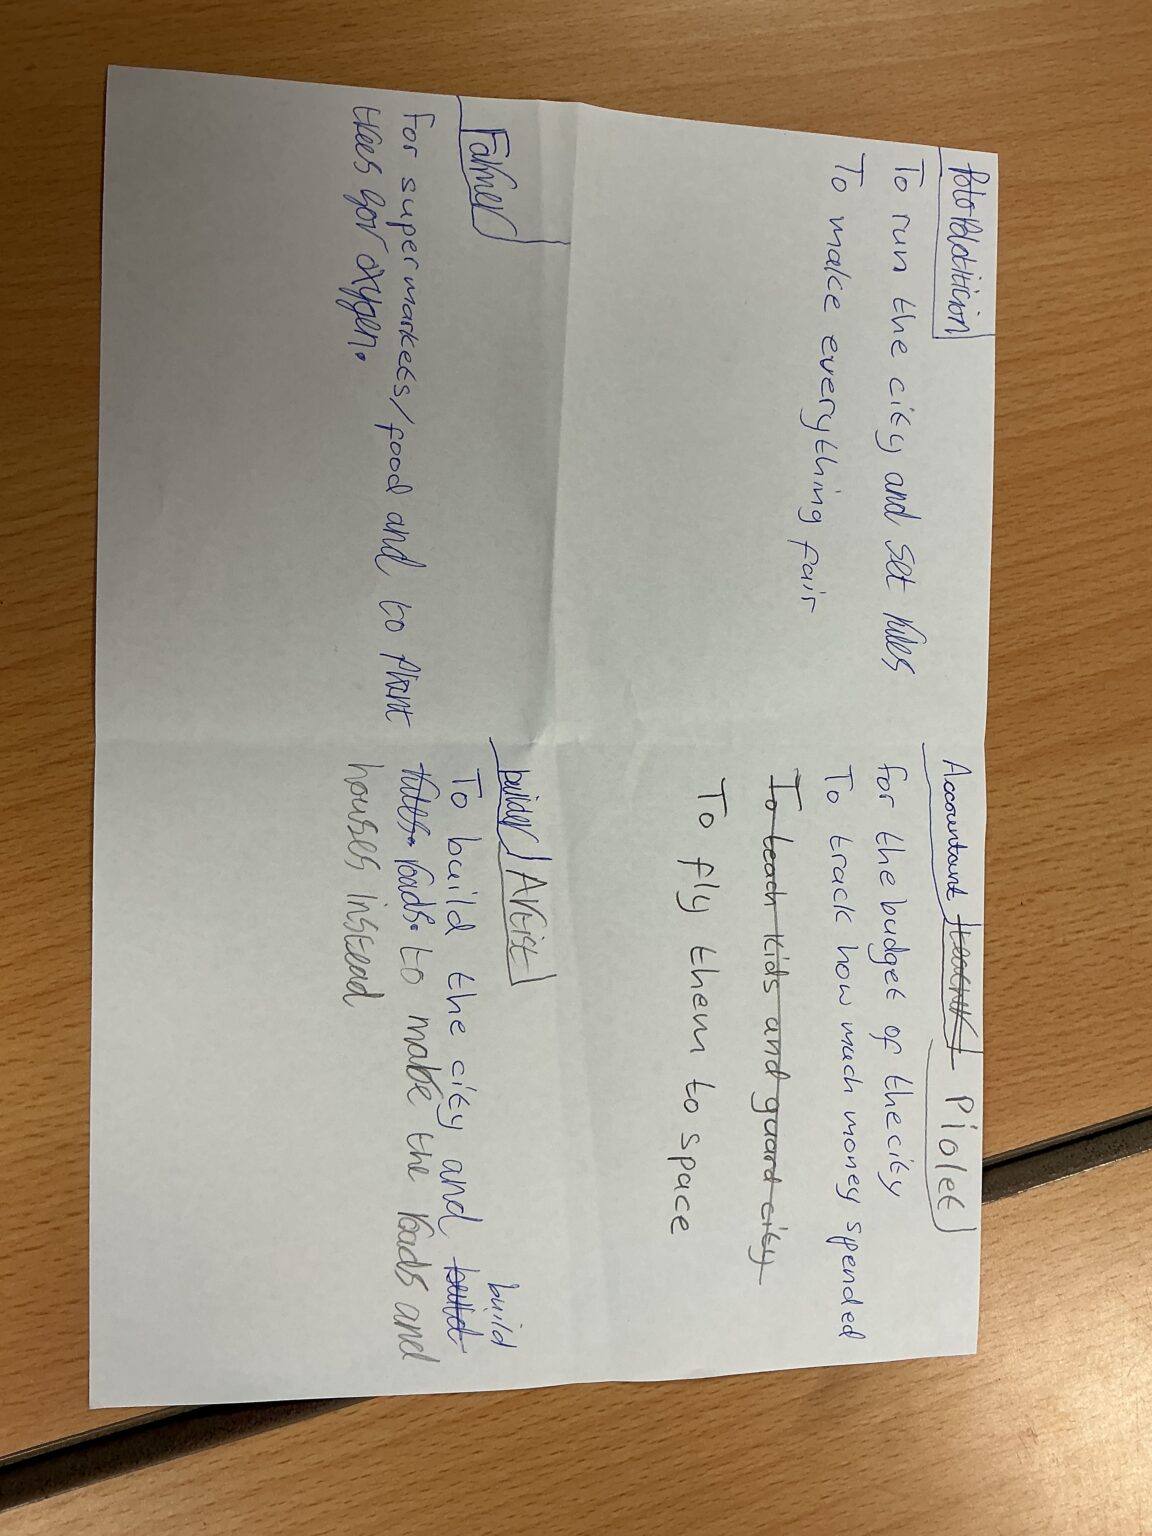 PoloPolitician
To run the city and set rules
To make everything fair
Accountant teacher Piolet
for the budget of the city
To track how much money spended
To teach kids and guard city
To fly them to space
Farmer
For supermarkets/food and to plant
trees for oxygen.
builder Artist
build
To build the city and build
rules. roads. to make the roads and
houses instead